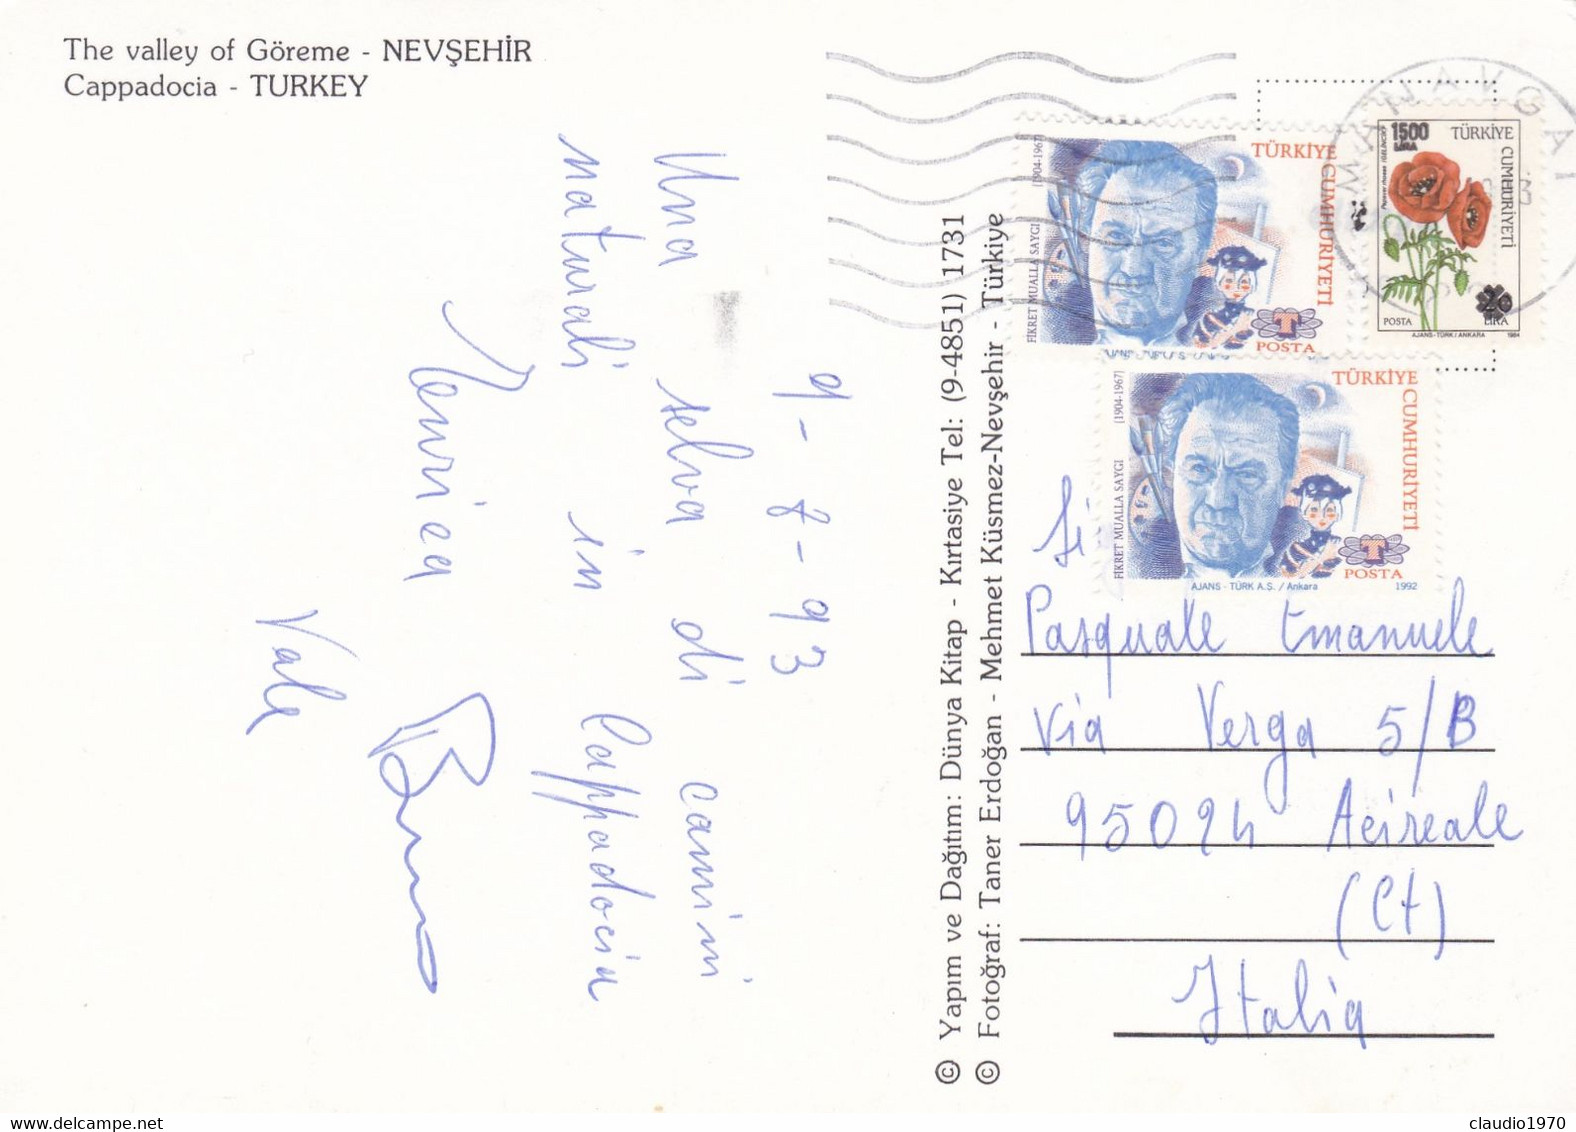 The valley of Göreme - NEVŞEHİR
Cappadocia - TURKEY
9-8-93
Una selva di camini
naturali in Cappadocia
Vale
© Yapım ve Dağıtım: Dünya Kitap - Kırtasiye Tel: (9-4851) 1731
© Fotoğraf: Taner Erdoğan - Mehmet Küsmez-Nevşehir - Türkiye
MANAVGAT
TÜRKİYE CUMHURİYETİ
(1904-1967)
FİKRET MUALLA SAYGI
T
POSTA
1500
LIRA
TÜRKİYE
CUMHURİYETİ
20
POSTA LİRA
AJANS-TÜRK/ANKARA 1984
TÜRKİYE CUMHURİYETİ
(1904-1967)
FİKRET MUALLA SAYGI
T
POSTA
AJANS - TÜRK A.Ş. / Ankara 1992
Pasquale Emanuele
Via Verga 5/B
95024 Acireale
(Ct)
Italia
claudio1970